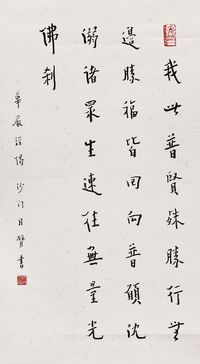 我此普賢殊勝行無
邊勝福皆回向普願沈
溺諸眾生速往無量光
佛剎
華嚴經偈 沙門月臂書